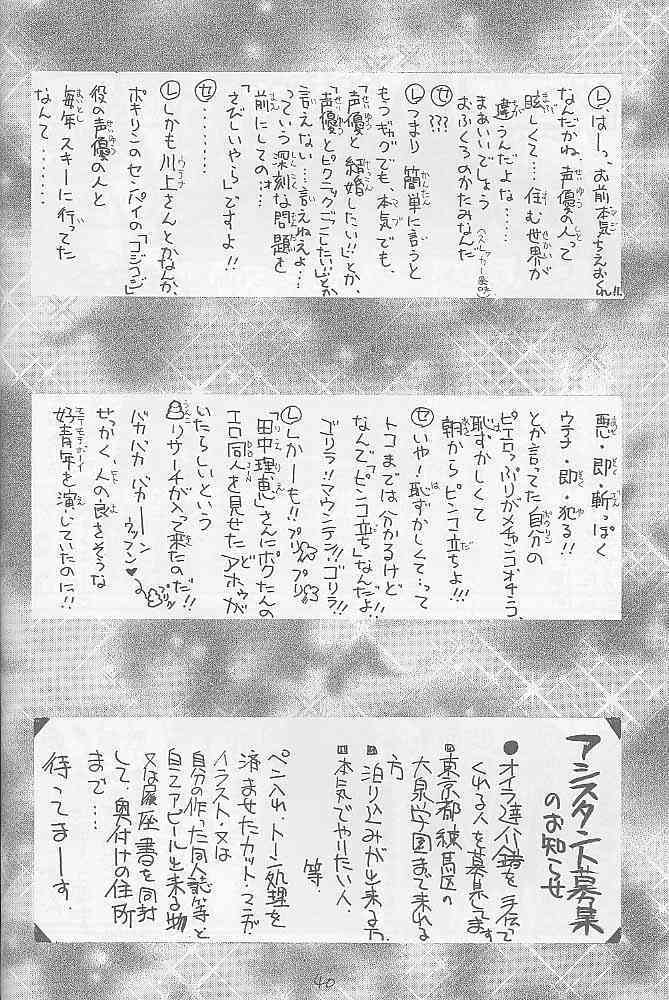 Ⓛ、はーっ、お前本気ちえおくれ!!
なんだかね、声優の人って
眩しくて‥‥住む世界が
違うんだよな‥‥‥
まあいいでしょう
おふくろのかたみなんだ
Ⓢ???
Ⓛつまり簡単に言うと
もつギグでも、本気でも、
「声優と結婚したい!!」とか、
「声優とピクニックごこしたい!!」とか
言えない‥‥言えねえよ‥‥
っていう深刻な問題を
前にしてのォ‥‥
「さびしいやら」ですよ!!
Ⓢ‥‥‥‥
Ⓛしかも川上さんとかなんか、
ポキリンのセンパイの「コジコジ」
役の声優の人と
毎年スキーに行ってた
なんて‥‥‥‥
悪・即・斬っぽく
ウ子・即・犯る!!
とか言ってた自分の
ピエロっぷりがメチャンコオチコ、
恥ずかしくて
朝からピンコ立ちよ!!!
Ⓢいや!恥ずかしくて‥って
トコまでは分かるけど
なんで「ピンコ立ち」なんだよ!!
ゴリラ!!マウンテン!!ゴリラ!!
Ⓛしかーも!!プリプリ
「田中理恵」さんにポクたんの
エロ同人を見せたアホゥが
いたらしいという
リサーチが入って来たのだ!!
バカバカバカーン
ウッフン♥
せっかく、人の良さそうな
好青年を演じていたのに!!
アシスタント募集
のお知らせ
●オイラ達八錆を手伝って
くれる人を募集してます
■東京都練馬区の
大泉学園まで来れる
方
■泊り込みが出来る方
■本気でやりたい人、
等
ペン入れ、トーン処理を
済ませたカット・マンガ
イラスト・又は
自分の作った同人誌等と
自己アピール出来る物
又は履歴書を同封
して、奥付けの住所
まで‥‥
待ってまーす。
40